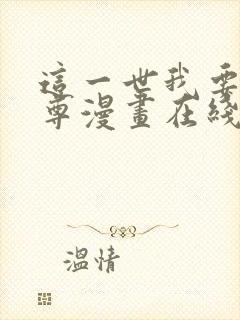 這一世我要
尊漫畫在綫
溫情